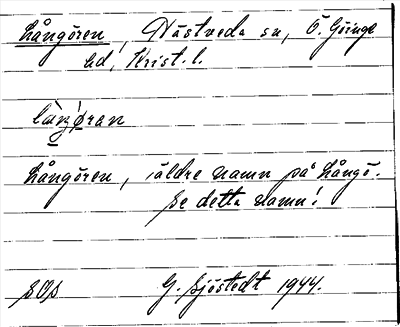 Långören, Västveda sn, Ö. Göinge
hd, Krist. l.
Långören, äldre namn på Långö.
Se detta namn!
G. Sjöstedt 1944.